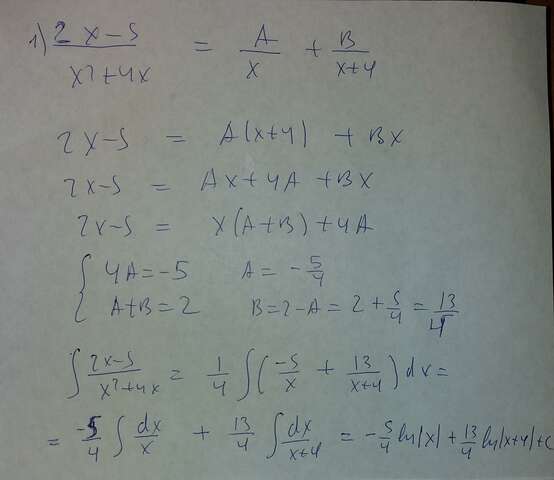 1) (2x-5)/(x²+4x) = A/x + B/(x+4)
2x-5 = A(x+4) + Bx
2x-5 = Ax+4A+Bx
2x-5 = x(A+B)+4A
{ 4A=-5 A= -5/4
A+B=2 B=2-A= 2+5/4 = 13/4
∫ (2x-5)/(x²+4x) = 1/4 ∫(-5/x + 13/(x+4)) dx=
= -5/4 ∫ dx/x + 13/4 ∫ dx/(x+4) = -5/4 ln|x|+13/4 ln|x+4|+C